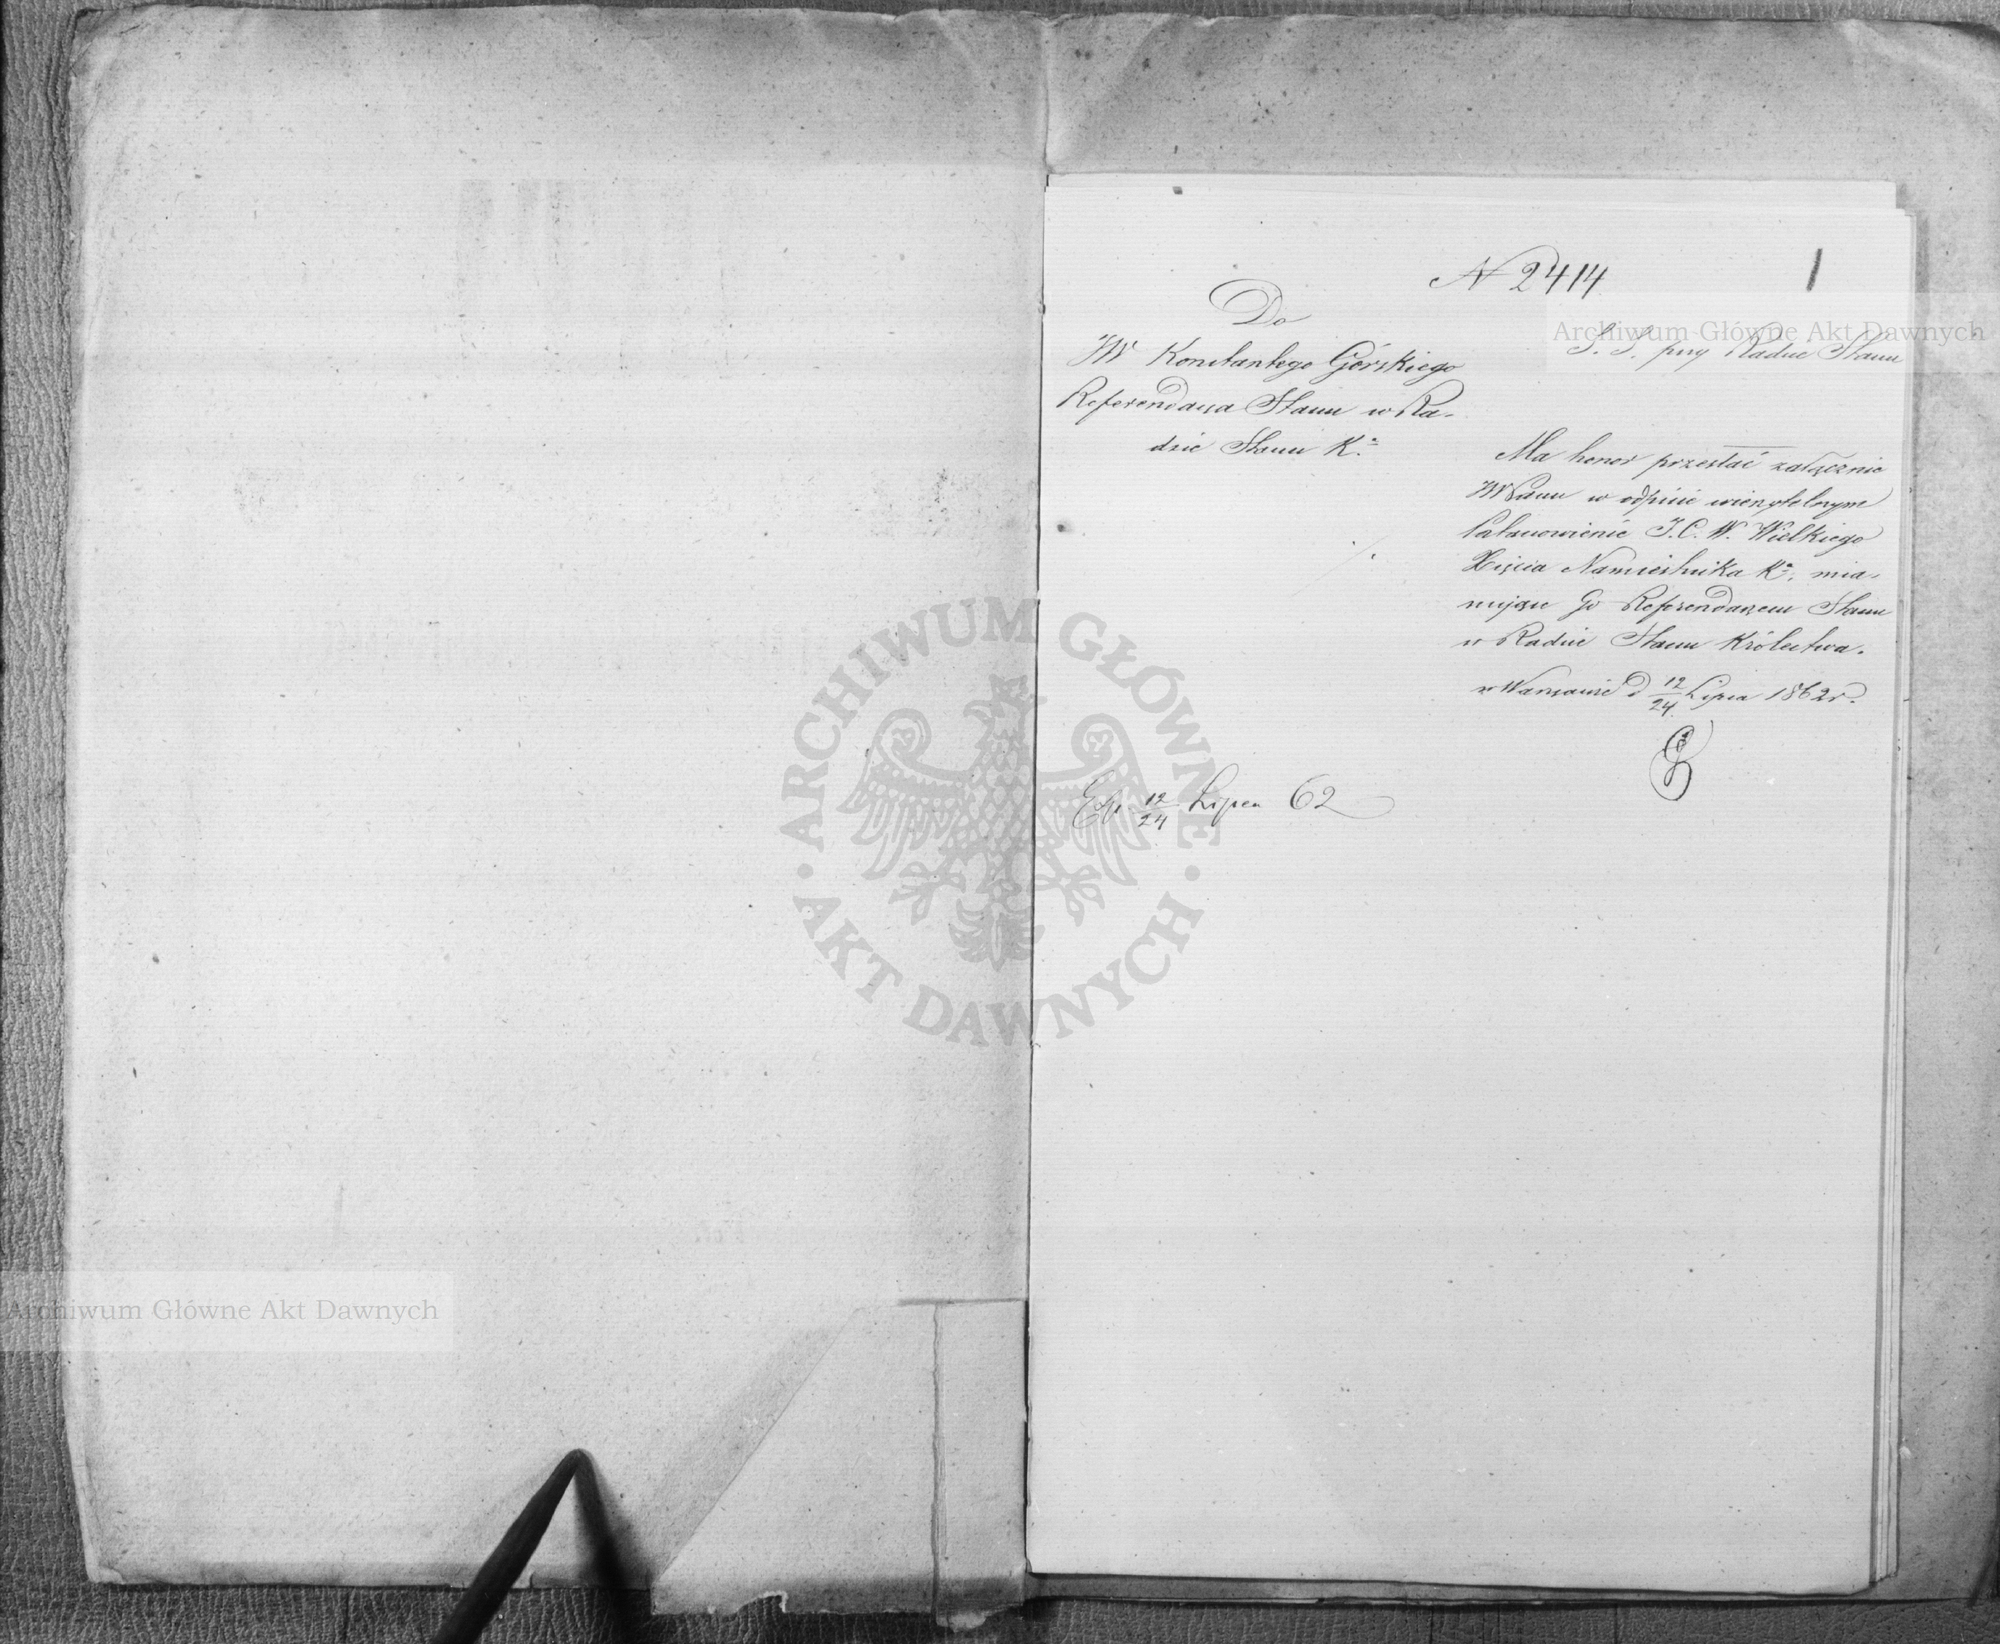 N 2414
1
Do
JW Konstantego Górskiego
Referendarza Stanu w Ra-
dzie Stanu K.
S. S. przy Radzie Stanu
Ma honor przesłać załącznie
JWPanu w odpisie wierzytelnym
Postanowienie J. C. W. Wielkiego
Xięcia Namiestnika K. mia-
nujące Go Referendarzem Stanu
w Radzie Stanu Królestwa.
w Warszawie d 12/24 Lipca 1862 r.
12/24 Lipca 62
Archiwum Główne Akt Dawnych
ARCHIWUM GŁÓWNE · AKT DAWNYCH ·
Archiwum Główne Akt Dawnych